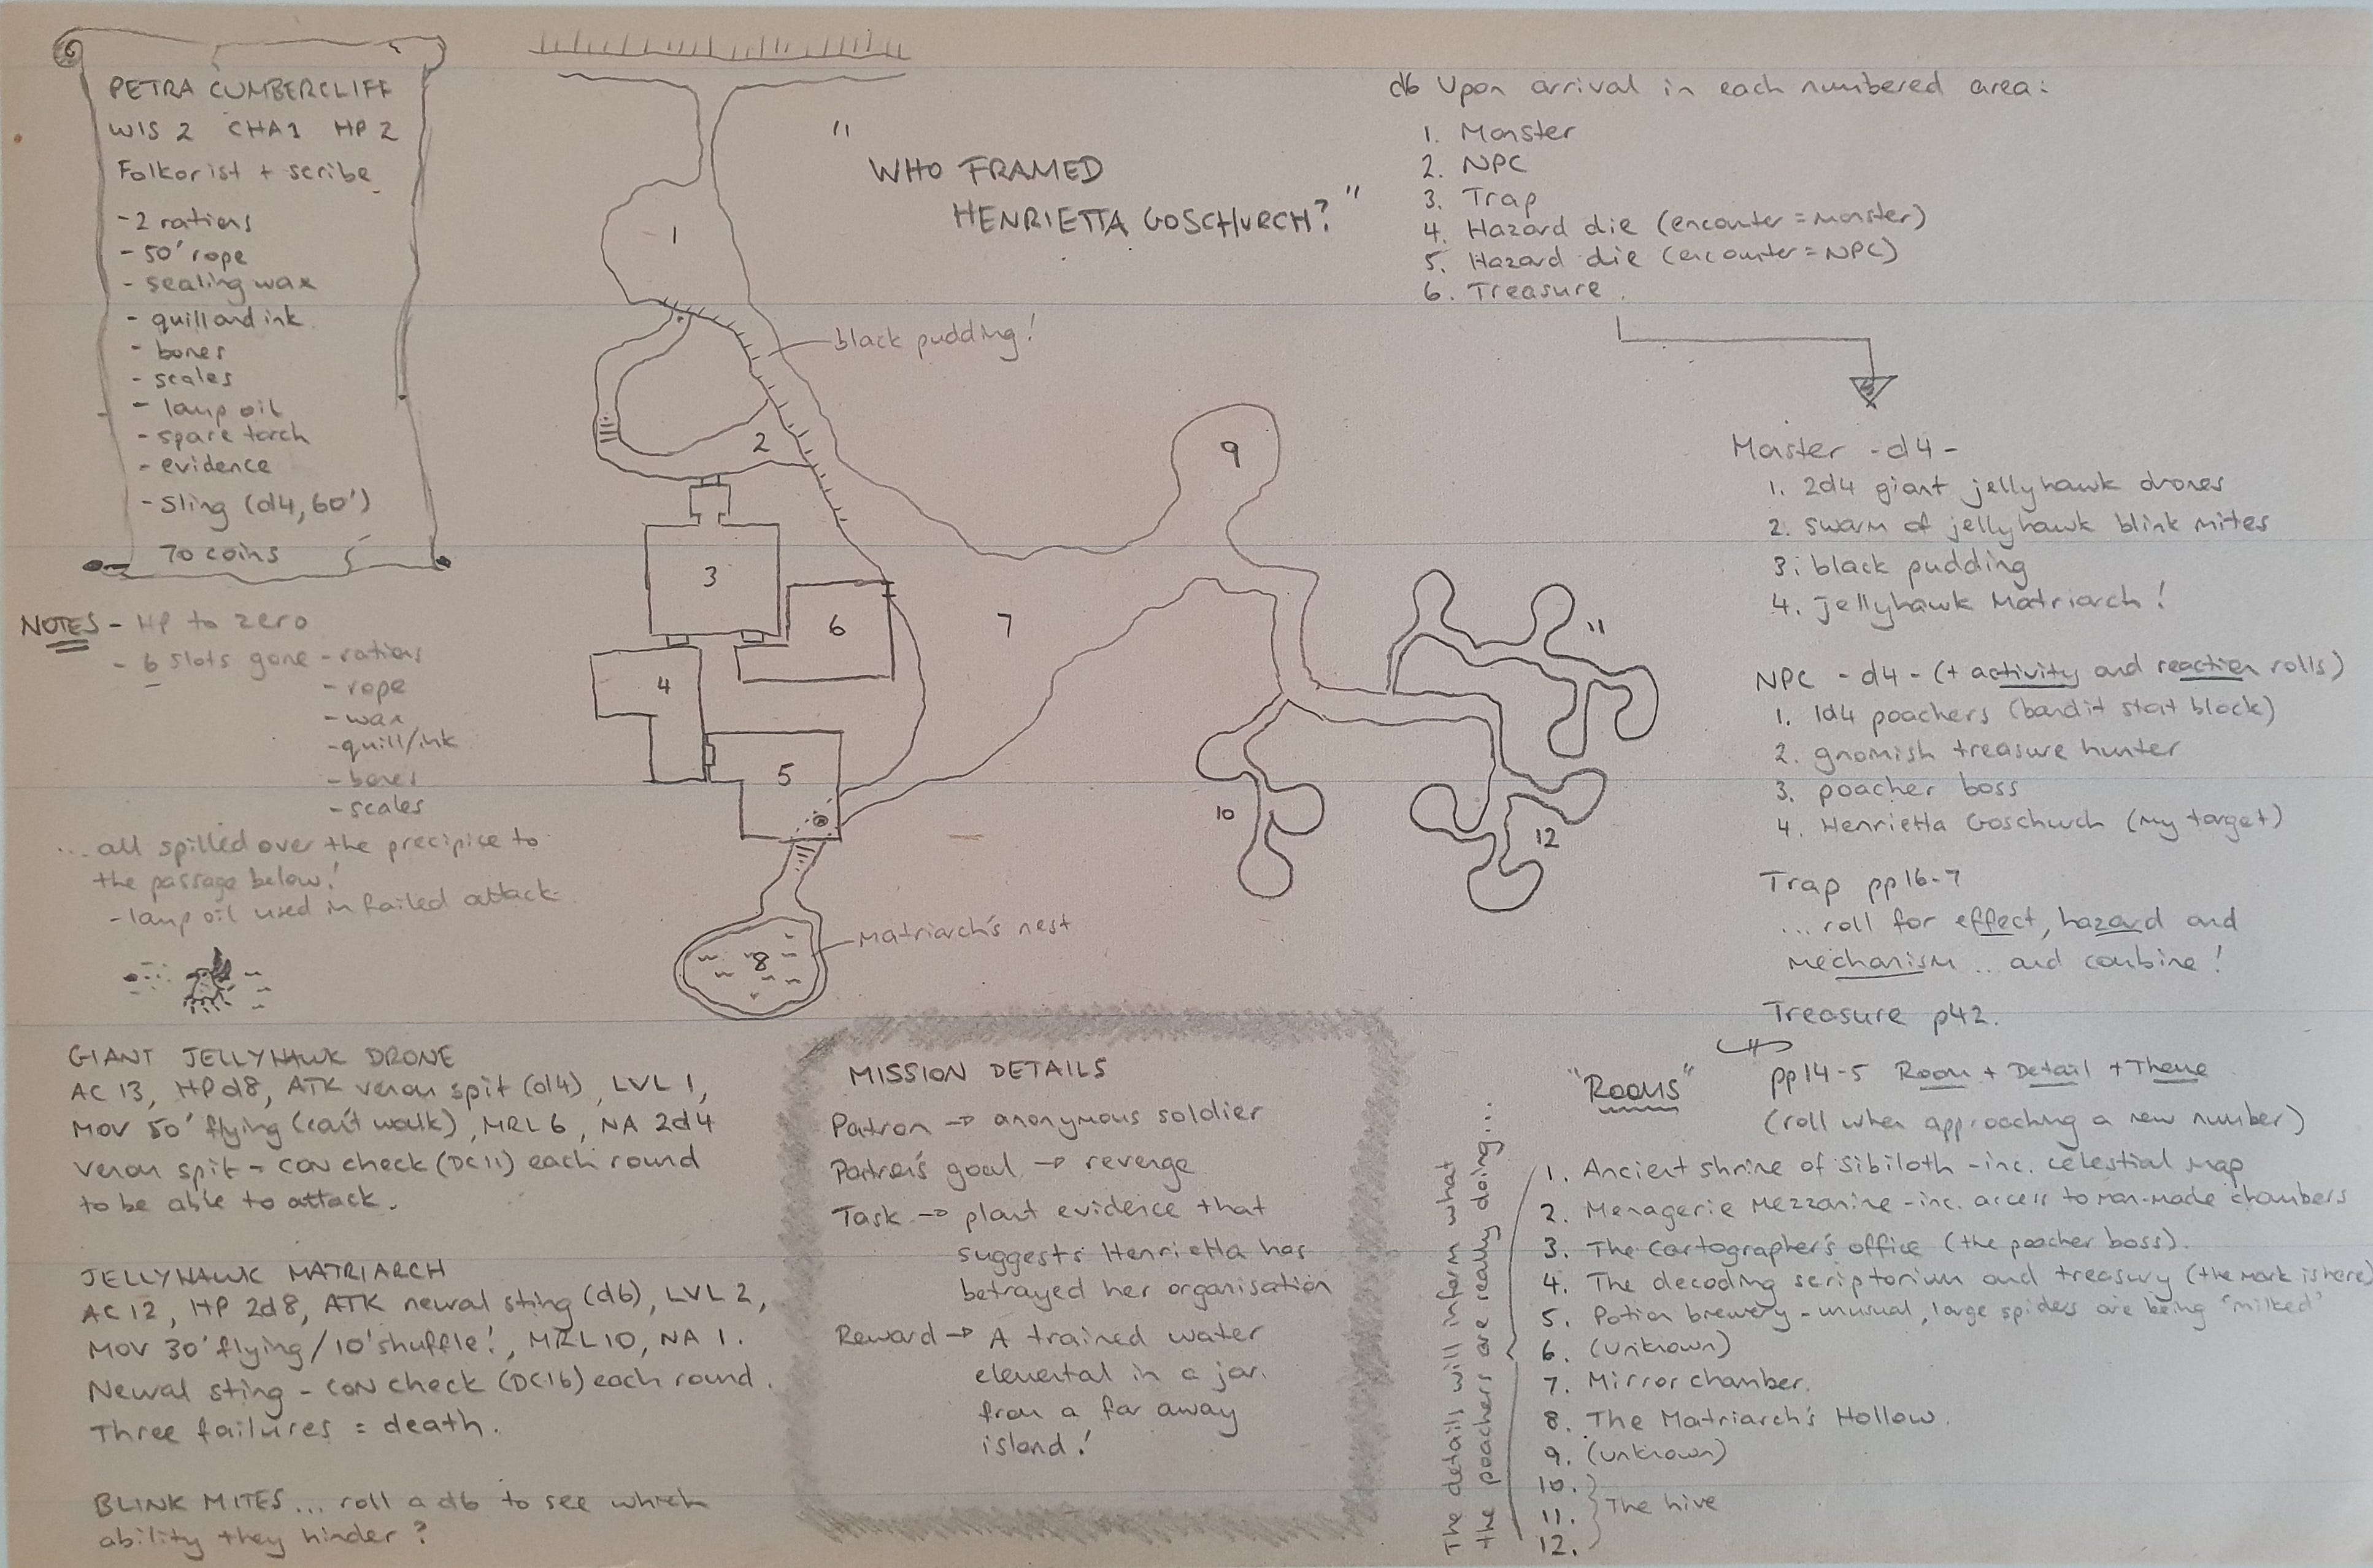 PETRA CUMBERCLIFF
WIS 2 CHA1 HP 2
Folkorist + scribe
- 2 rations
- 50' rope
- sealing wax
- quill and ink
- bones
- scales
- lamp oil
- spare torch
- evidence
- Sling (d4, 60')
70 coins
NOTES - HP to zero
- 6 slots gone - rations
- rope
- wax
- quill/ink
- bones
- scales
... all spilled over the precipice to
the passage below!
- lamp oil used in failed attack
GIANT JELLYHAWK DRONE
AC 13, HP d8, ATK venom spit (d4), LVL 1,
MOV 50' flying (can't walk), MRL 6, NA 2d4
Venom spit - CON check (DC11) each round
to be able to attack.
JELLYHAWK MATRIARCH
AC 12, HP 2d8, ATK neural sting (d6), LVL 2,
MOV 30' flying / 10' shuffle!, MRL 10, NA 1.
Neural sting - CON check (DC16) each round.
Three failures = death.
BLINK MITES... roll a d6 to see which
ability they hinder?
"WHO FRAMED
HENRIETTA GOSCHURCH?"
1
black pudding!
2
3
4
5
6
7
8
Matriarch's nest
9
10
11
12
MISSION DETAILS
Patron → anonymous soldier
Patron's goal → revenge
Task → plant evidence that
suggests Henrietta has
betrayed her organisation
Reward → A trained water
elemental in a jar.
from a far away
island!
d6 Upon arrival in each numbered area:
1. Monster
2. NPC
3. Trap
4. Hazard die (encounter = monster)
5. Hazard die (encounter = NPC)
6. Treasure
Monster - d4 -
1. 2d4 giant jellyhawk drones
2. swarm of jellyhawk blink mites
3. black pudding
4. jellyhawk Matriarch!
NPC - d4 - (+ activity and reaction rolls)
1. 1d4 poachers (bandit stat block)
2. gnomish treasure hunter
3. poacher boss
4. Henrietta Goschurch (my target)
Trap pp16-7
...roll for effect, hazard and
mechanism... and combine!
Treasure p42.
"Rooms" pp14-5 Room + Detail + Theme
(roll when approaching a new number)
The details will inform what
the poachers are really doing...
1. Ancient shrine of Sibiloth - inc. celestial map
2. Menagerie Mezzanine - inc. access to man-made chambers
3. The Cartographer's office (the poacher boss).
4. The decoding scriptorium and treasury (the mark is here)
5. Potion brewery - unusual, large spiders are being "milked"
6. (unknown)
7. Mirror chamber.
8. The Matriarch's Hollow.
9. (unknown)
10.
11. The hive
12.